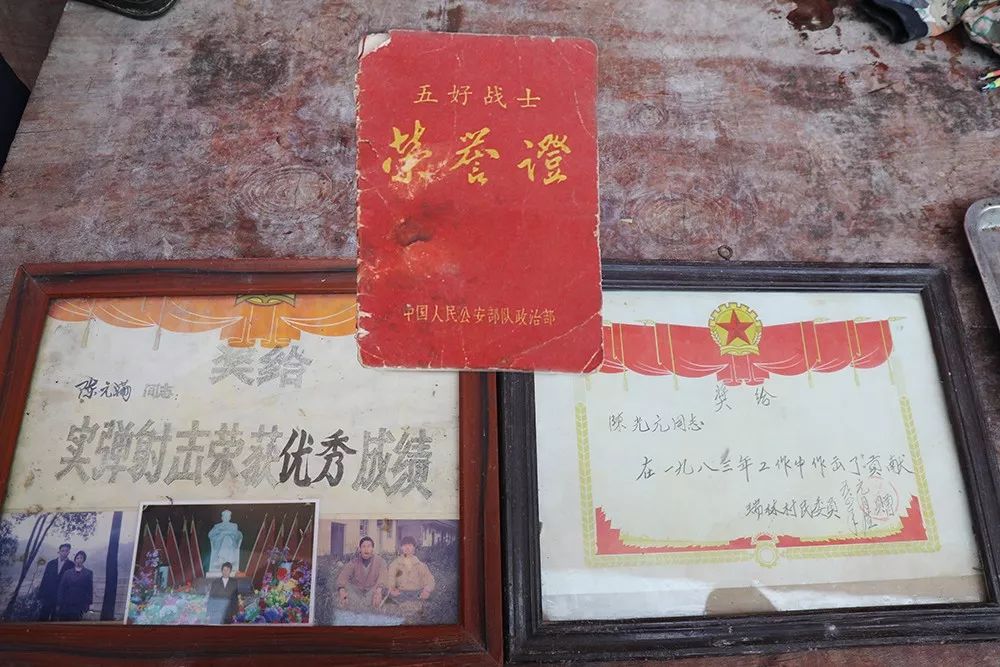 五好战士
荣誉證
中国人民公安部队政治部
奖给
陈元瑞 同志:
实弹射击荣获优秀成绩
奖给
陈光元同志
在一九八三年工作中作出了贡献
瑞林村民委员